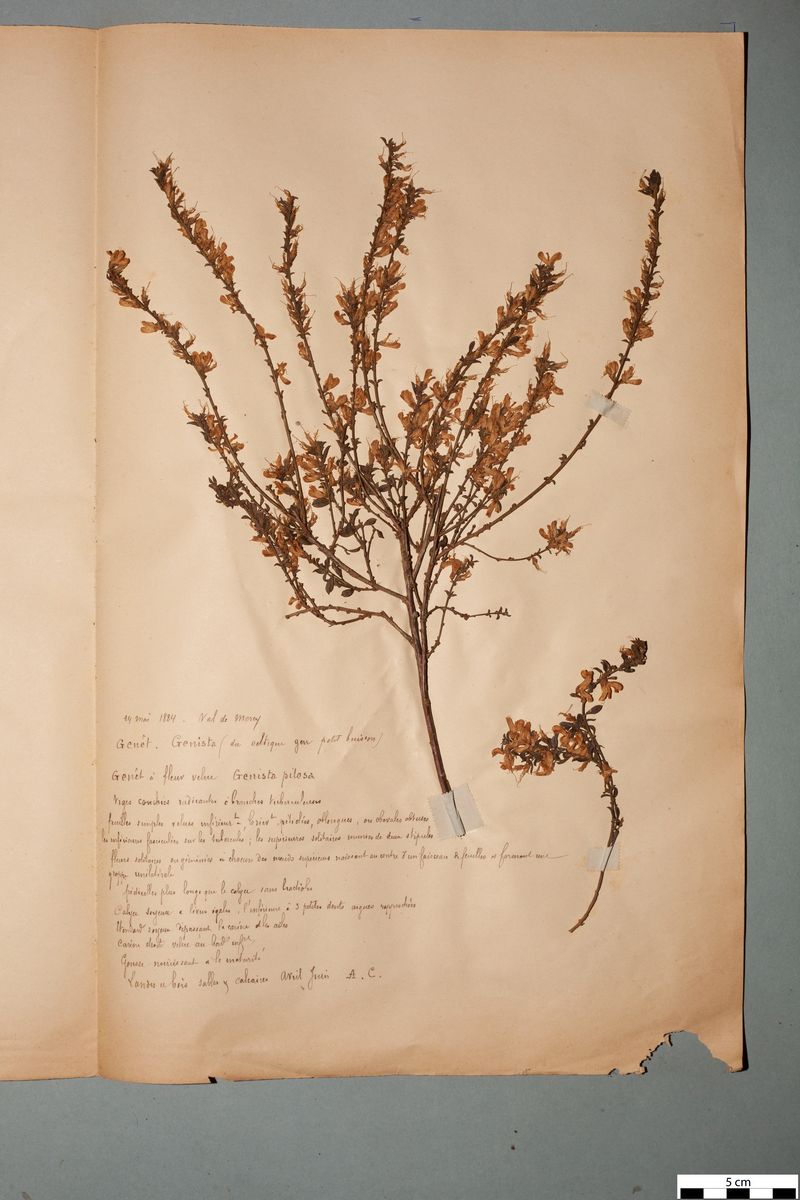 24 mai 1884. Val de Morey
Genêt. Genista (du celtique gen petit buisson)
Genêt à fleur velue Genista pilosa
Tiges couchées radicantes à branches tuberculeuses
feuilles simples velues inférieurt. Brièvt pétiolées, oblongues, ou obovales obtuses
les inférieures fasciculées sur les tubercules; les supérieures solitaires munies de deux stipules
fleurs solitaires ou géminées à chacun des nœuds supérieurs naissant au centre d'un faisceau de feuilles et formant une
grappe unilatérale
pédicelles plus longs que le calyce sans bractéoles
Calyce soyeux à lèvres égales, l'inférieure à 3 petites dents aigues rapprochées
Etendard soyeux dépassant la carène et les ailes
Carène droit velue au bord infr
Gousse noircissant à la maturité
Landes et bois sables et calcaires Avril Juin A. C.
5 cm